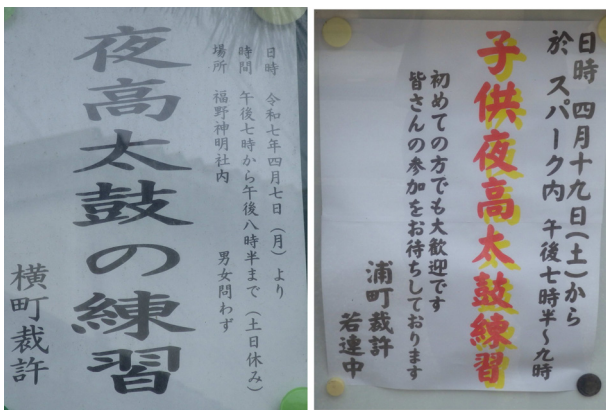 日時 令和七年四月七日（月）より
時間 午後七時から午後八時半まで（土日休み）
場所 福野神明社内 男女問わず
夜高太鼓の練習
横町裁許
日時 四月十九日(土)から
於 スパーク内 午後七時半～九時
子供夜高太鼓練習
初めての方でも大歓迎です
皆さんの参加をお待ちしております
浦町裁許
若連中